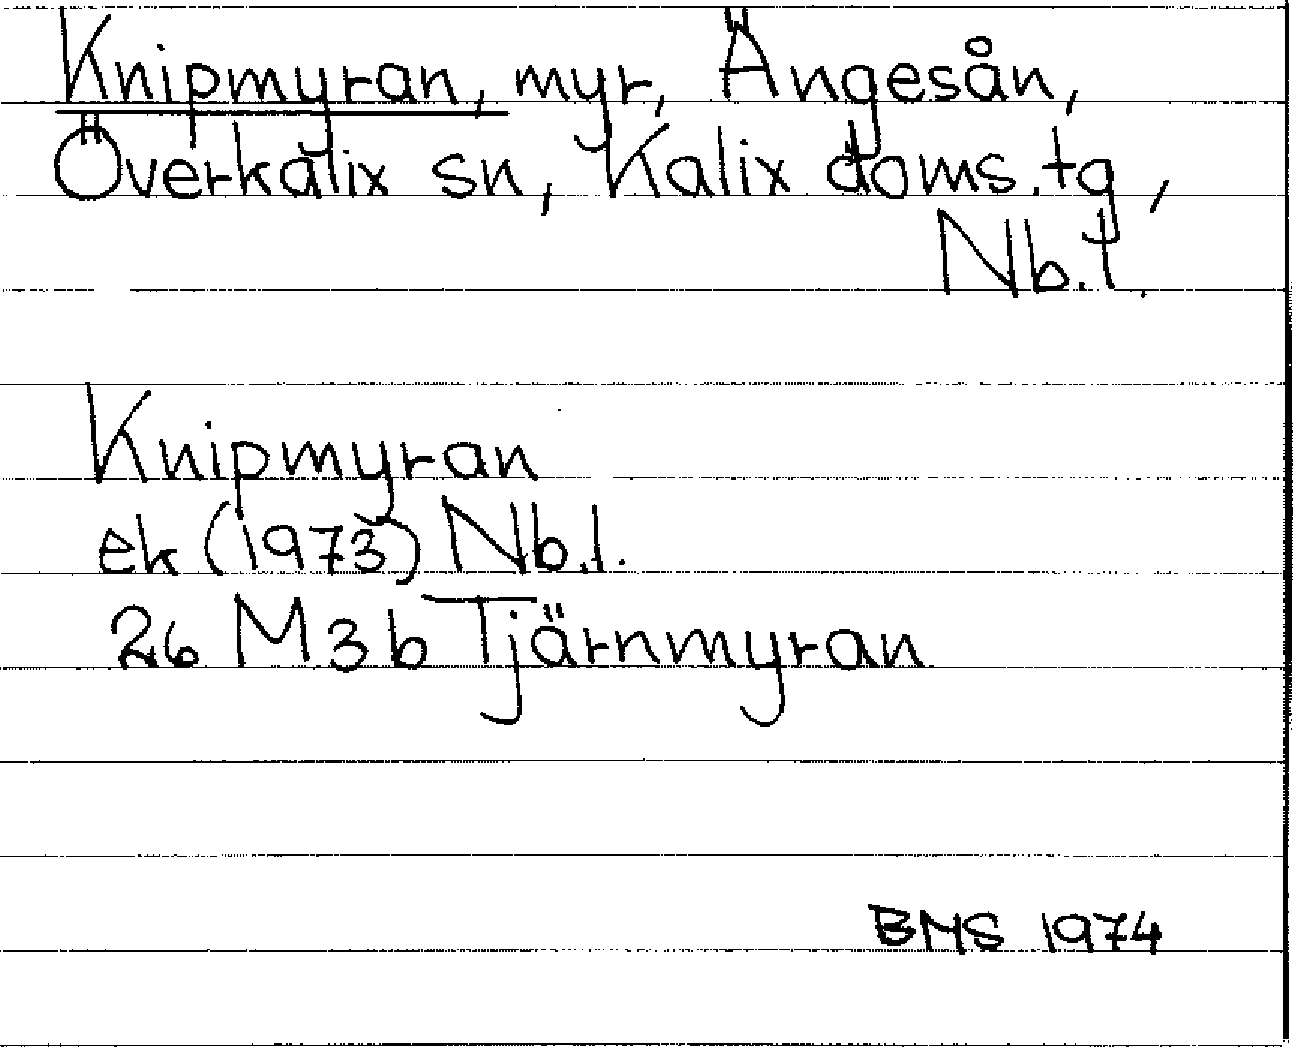 Knipmyran, myr, Ängesån,
Överkalix sn, Kalix doms.tg,
Nb.l.
Knipmyran
ek (1973) Nb.l.
26 M 3 b Tjärnmyran
BMS 1974